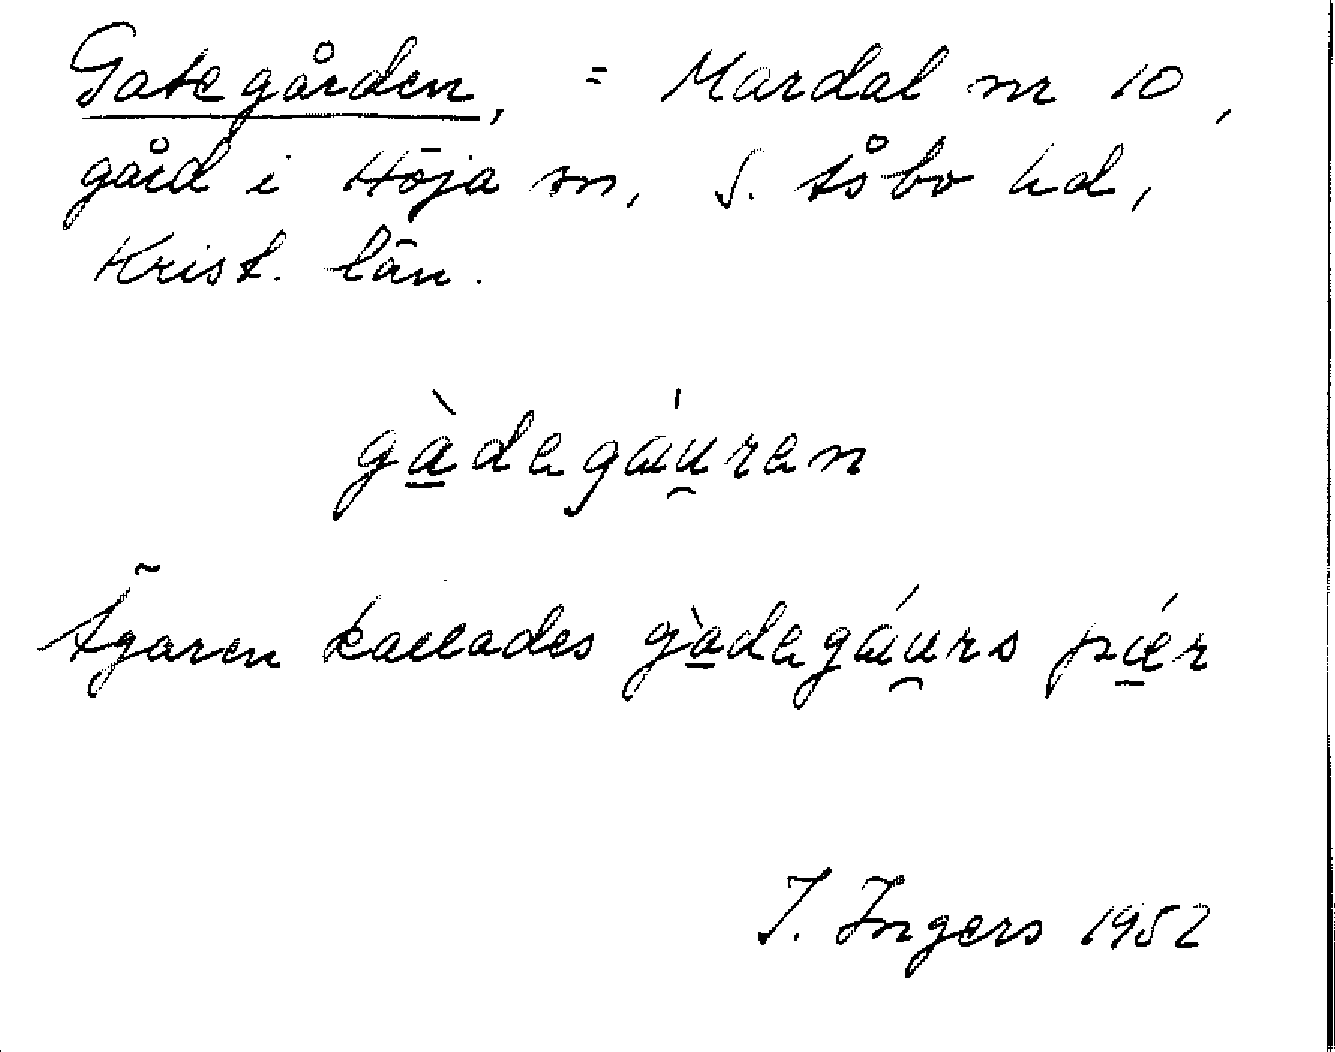 Gategården, = Mardal nr 10,
gård i Höja sn, S. Åsbo hd,
Krist. län.
gàdegáuren
Ägaren kallades gàdegáurs pèr
I. Ingers 1952